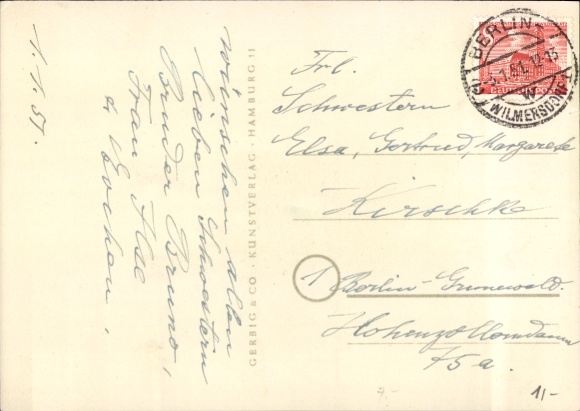 wünschen allen
lieben Schwestern
Bruder Bruno,
Frau Ilse
1.1.51.
GERBIG & CO · KUNSTVERLAG · HAMBURG 11
BERLIN-
WILMERSDORF
DEUTSCHE POST
Frl.
Schwestern
Elsa, Gertrud, Margarete
Kirschke
1 Berlin-Grunewald.
Hohenzollerndamm
75a.
1/-